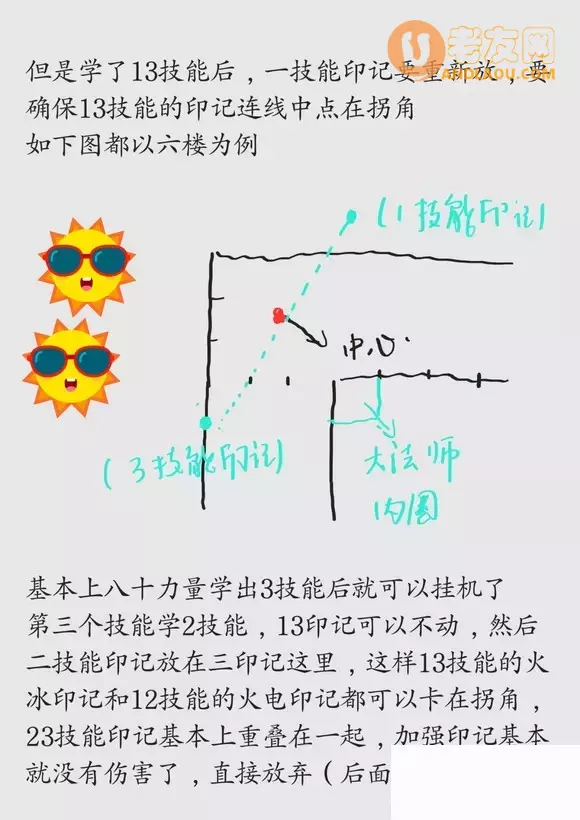 老友网
LAOYOUU.COM
但是学了13技能后，一技能印记要重新放，要
确保13技能的印记连线中点在拐角
如下图都以六楼为例
(1技能印记)
中心
(3技能印记)
大法师
内圈
基本上八十力量学出3技能后就可以挂机了
第三个技能学2技能，13印记可以不动，然后
二技能印记放在三印记这里，这样13技能的火
冰印记和12技能的火电印记都可以卡在拐角，
23技能印记基本上重叠在一起，加强印记基本
就没有伤害了，直接放弃（后面